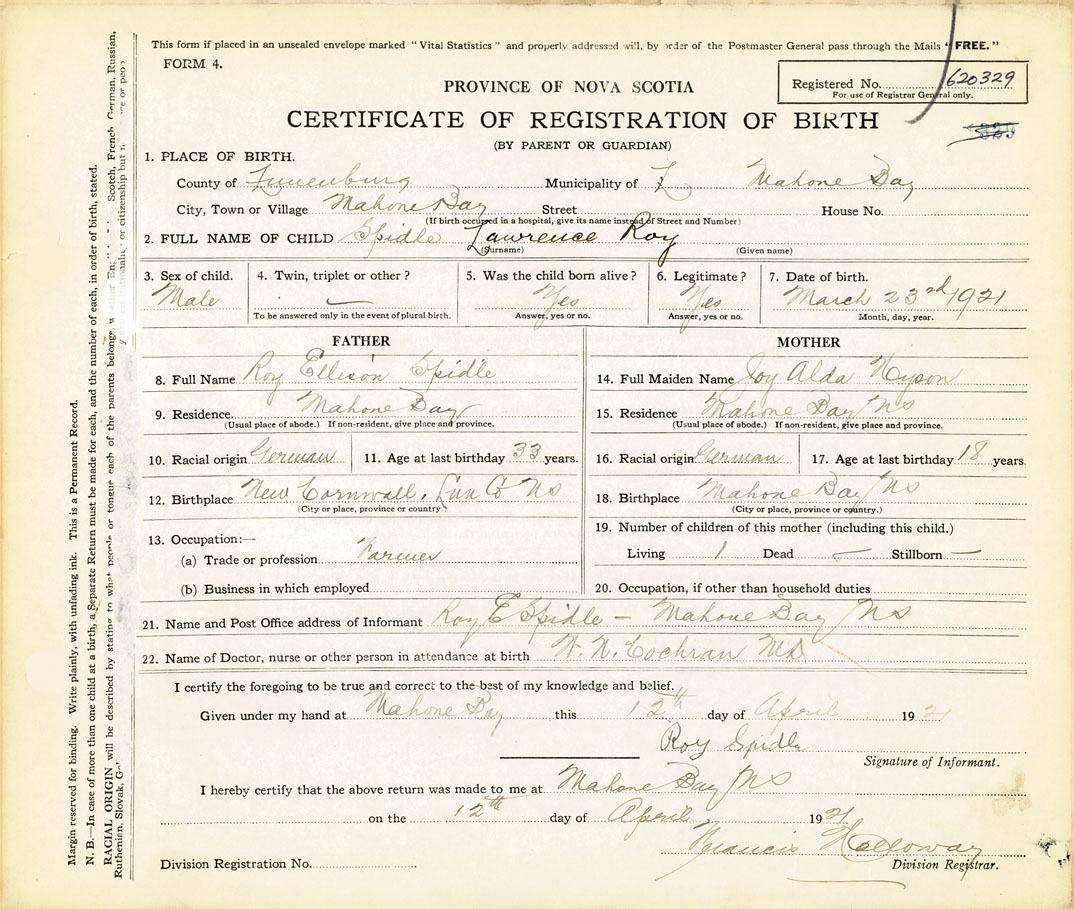 This form if placed in an unsealed envelope marked "Vital Statistics" and properly addressed will, by order of the Postmaster General pass through the Mails "FREE."
FORM 4.
Registered No. 620329
For use of Registrar General only.
PROVINCE OF NOVA SCOTIA
CERTIFICATE OF REGISTRATION OF BIRTH
(BY PARENT OR GUARDIAN)
1. PLACE OF BIRTH.
County of Lunenburg Municipality of Mahone Bay
City, Town or Village Mahone Bay Street House No.
(If birth occurred in a hospital, give its name instead of Street and Number)
2. FULL NAME OF CHILD Spidle Lawrence Roy
(Surname) (Given name)
3. Sex of child. 4. Twin, triplet or other? 5. Was the child born alive? 6. Legitimate? 7. Date of birth.
Male — Yes Yes March 23rd 1921
To be answered only in the event of plural birth. Answer, yes or no. Answer, yes or no. Month, day, year.
FATHER
8. Full Name Roy Ellison Spidle
9. Residence. Mahone Bay
(Usual place of abode.) If non-resident, give place and province.
10. Racial origin German 11. Age at last birthday 33 years.
12. Birthplace New Cornwall, Lun Co NS
(City or place, province or country.)
13. Occupation:—
(a) Trade or profession Farmer
(b) Business in which employed
MOTHER
14. Full Maiden Name Joy Alda Hyson
15. Residence Mahone Bay NS
(Usual place of abode.) If non-resident, give place and province.
16. Racial origin German 17. Age at last birthday 18 years
18. Birthplace Mahone Bay NS
(City or place, province or country.)
19. Number of children of this mother (including this child.)
Living 1 Dead — Stillborn —
20. Occupation, if other than household duties
21. Name and Post Office address of Informant Roy E Spidle – Mahone Bay NS
22. Name of Doctor, nurse or other person in attendance at birth W. N. Cochran MD
I certify the foregoing to be true and correct to the best of my knowledge and belief.
Given under my hand at Mahone Bay this 12th day of April 1921
Roy Spidle
Signature of Informant.
I hereby certify that the above return was made to me at Mahone Bay NS
on the 12th day of April 1921
Francis Holloway
Division Registration No. Division Registrar.
Margin reserved for binding. Write plainly, with unfading ink. This is a Permanent Record.
N. B.—In case of more than one child at a birth, a Separate Return must be made for each, and the number of each, in order of birth, stated.
RACIAL ORIGIN will be described by stating to what people or tongue each of the parents belongs, Scotch, French, German, Russian,
Ruthenian, Slovak, or citizenship but